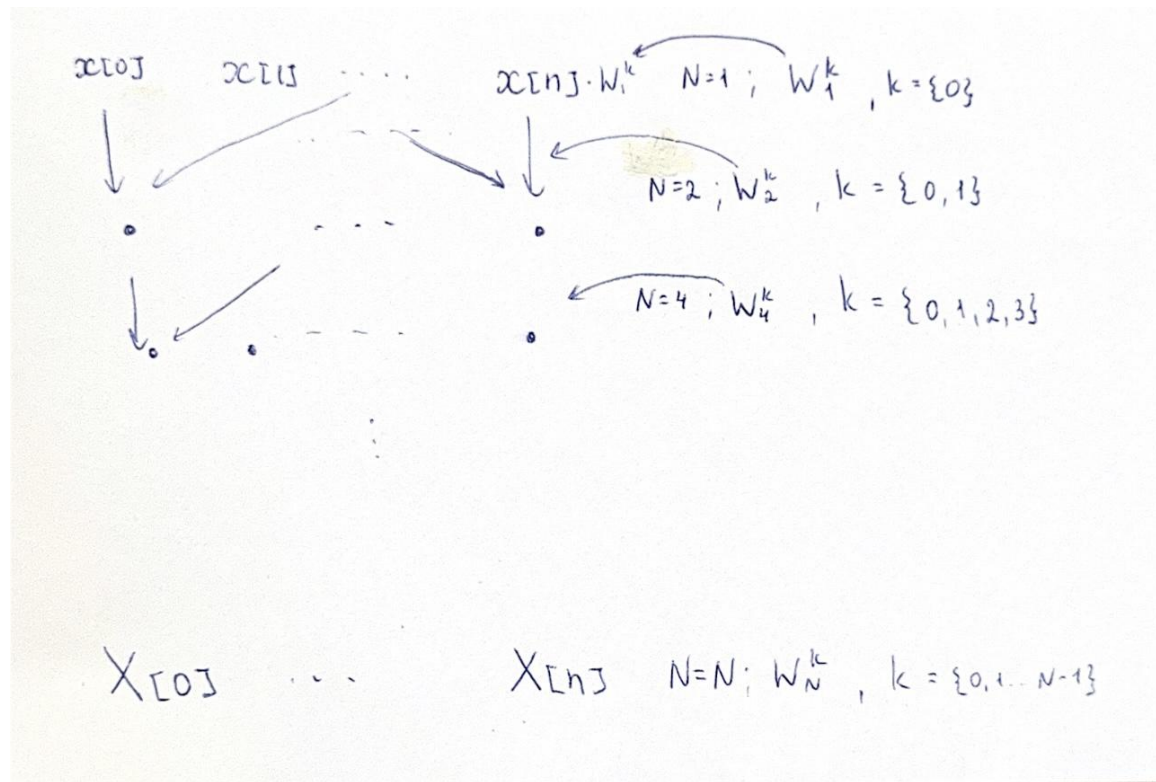 x[0] x[1] .... x[n]·W₁ᵏ N=1; W₁ᵏ, k={0}
N=2; W₂ᵏ, k={0,1}
N=4; W₄ᵏ, k={0,1,2,3}
X[0] ... X[n] N=N; W_Nᵏ, k={0,1...N-1}